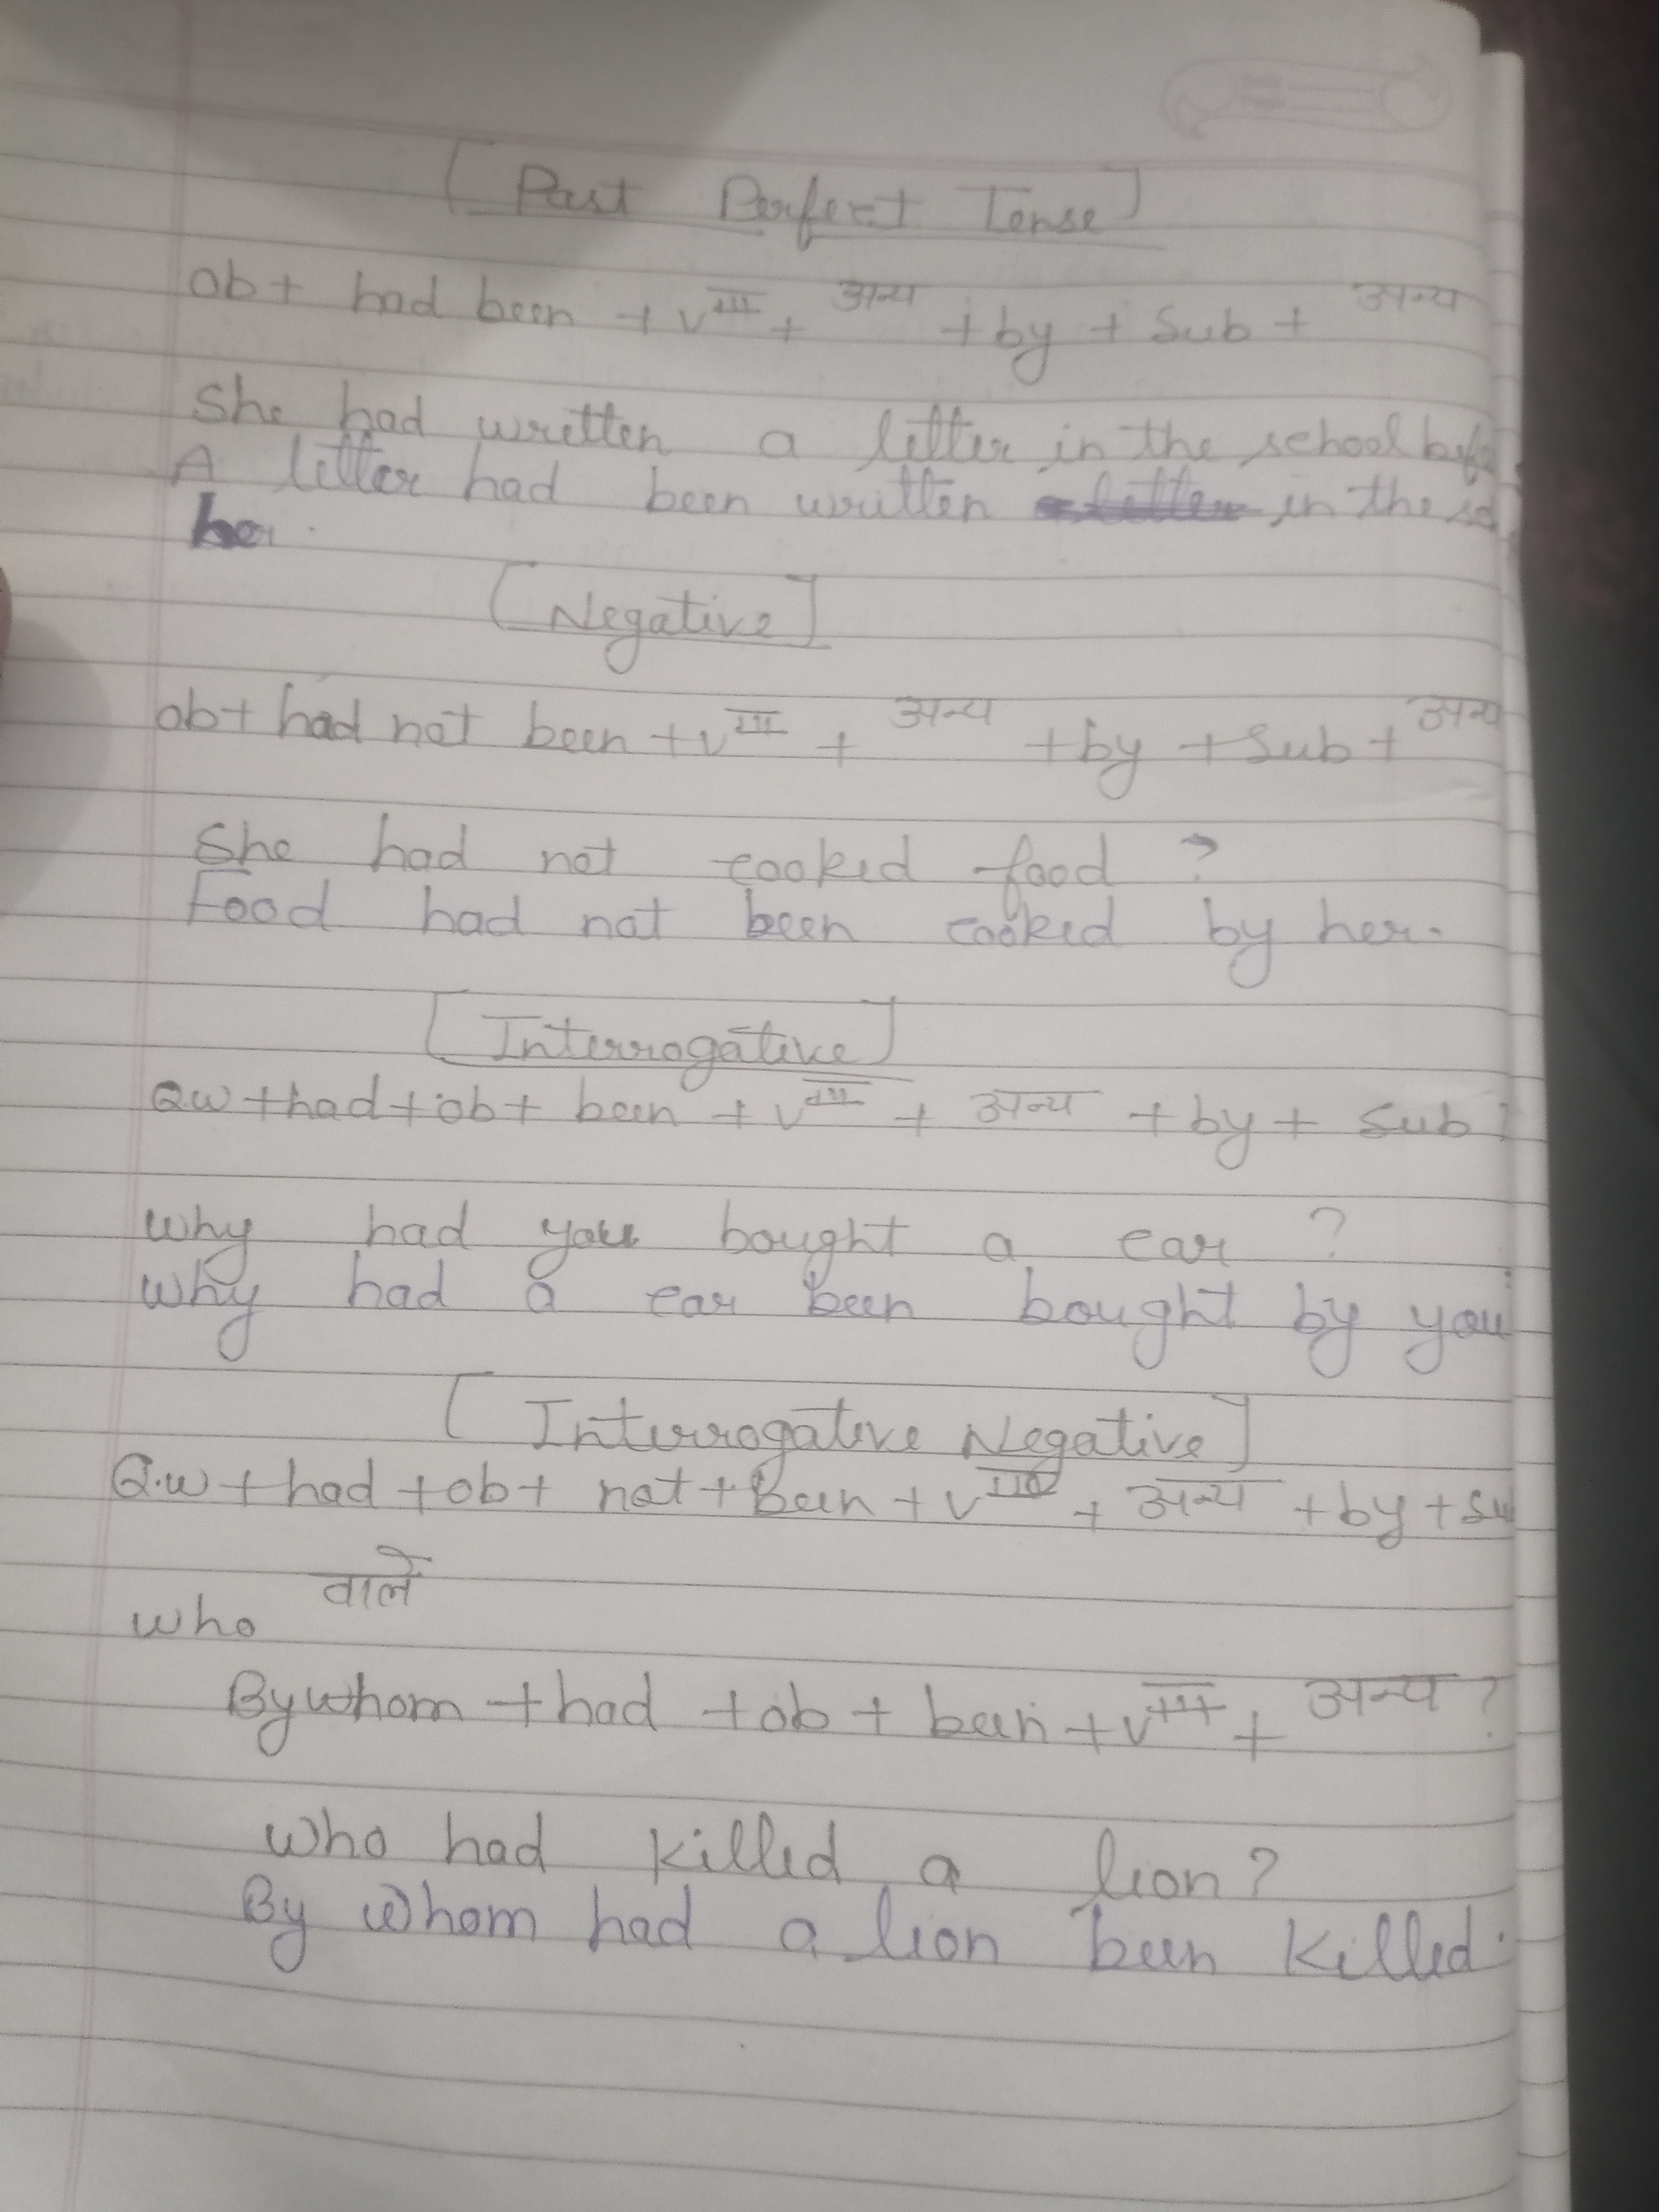 [Past Perfect Tense]
ob + had been + v III + अन्य + by + Sub + अन्य
She had written a letter in the school
A letter had been written in the
her.
[Negative]
ob + had not been + v III + अन्य + by + Sub + अन्य
She had not cooked food ?
Food had not been cooked by her.
[Interrogative]
Q.w + had + ob + been + v III + अन्य + by + Sub ?
Why had you bought a car ?
Why had a car been bought by you
[Interrogative Negative]
Q.w + had + ob + not + been + v III + अन्य + by + Su
who वाले
By whom + had + ob + been + v III + अन्य ?
Who had killed a lion?
By whom had a lion been killed.